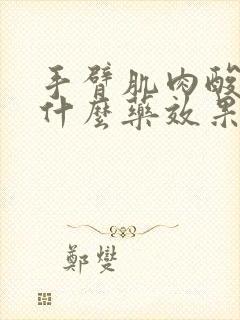 手臂肌肉酸
什麼藥效果
鄭燮